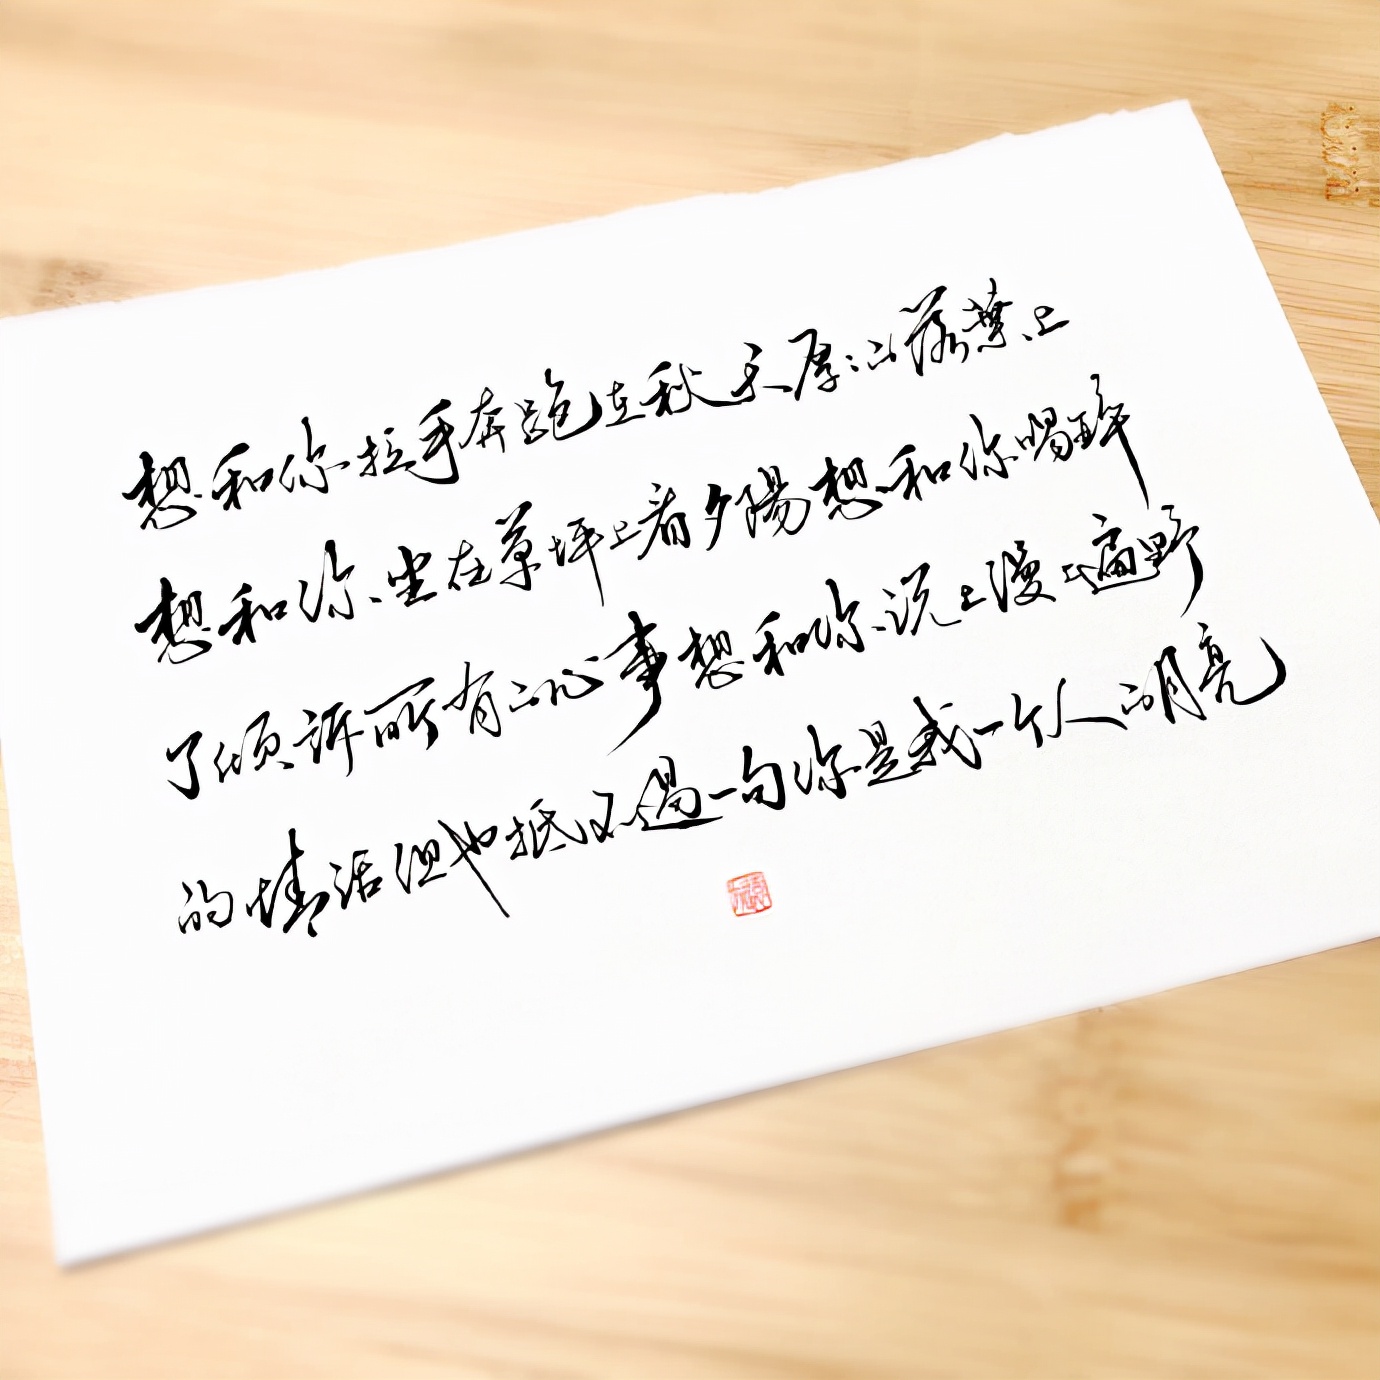 想和你拉手奔跑在秋天厚厚的落葉上
想和你坐在草坪上看夕陽想和你喝醉
了傾訴所有的心事想和你說上漫山遍野
的情話但也抵不過一句你是我一个人的月亮